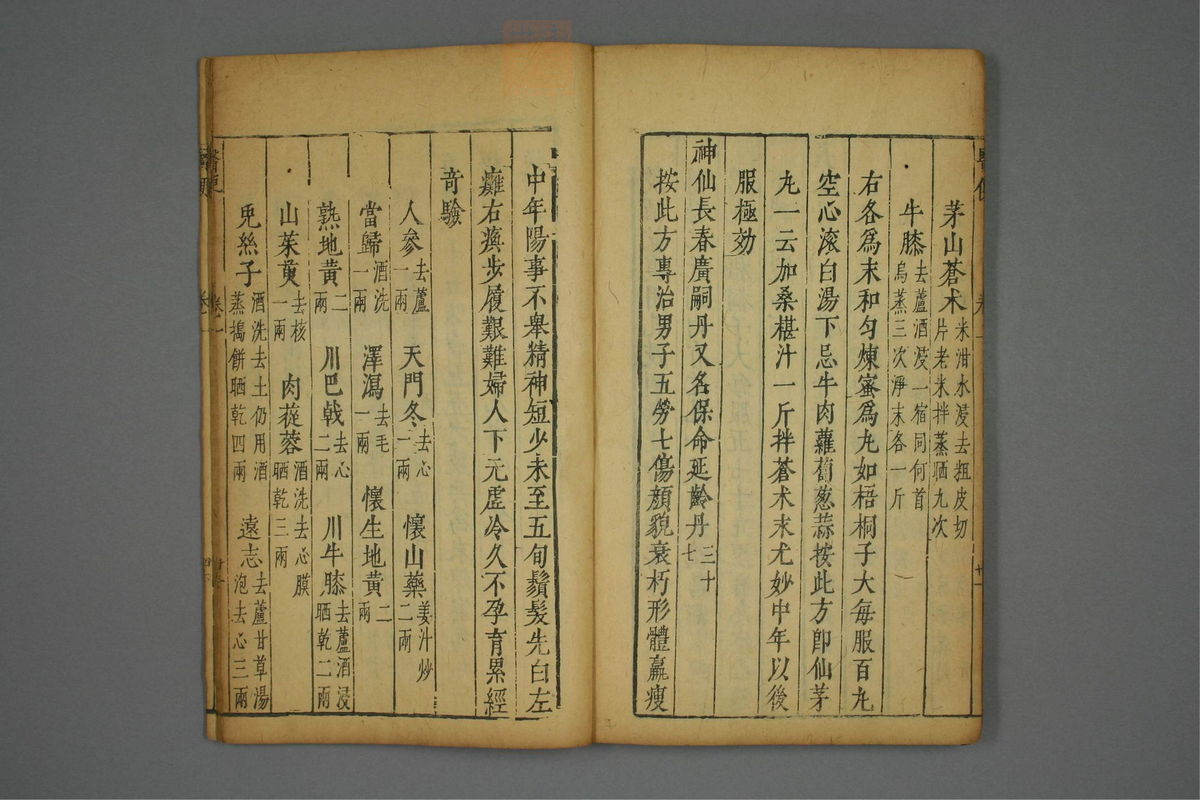 茅山蒼术米泔水浸去粗皮切片老米拌蒸晒九次
牛膝去蘆酒浸一宿同何首烏蒸三次淨末各一斤
右各爲末和勻煉蜜爲丸如梧桐子大每服百丸
空心滾白湯下忌牛肉蘿蔔葱蒜按此方即仙茅
丸一云加桑椹汁一斤拌蒼术末尤妙中年以後
服極効
神仙長春廣嗣丹又名保命延齡丹三十七
按此方專治男子五勞七傷顏貌衰朽形體羸瘦
中年陽事不舉精神短少未至五旬鬚髮先白左
癱右瘓步履艱難婦人下元虛冷久不孕育累經
奇驗
人參去蘆一兩 天門冬去心一兩 懷山藥姜汁炒二兩
當歸酒洗一兩 澤瀉去毛一兩 懷生地黃二兩
熟地黃二兩 川巴戟去心二兩 川牛膝去蘆酒浸晒乾二兩
山茱萸去核一兩 肉蓯蓉酒洗去心膜晒乾三兩
兎絲子酒洗去土仍用酒蒸搗餅晒乾四兩 遠志去蘆甘草湯泡去心三兩
醫便
卷一